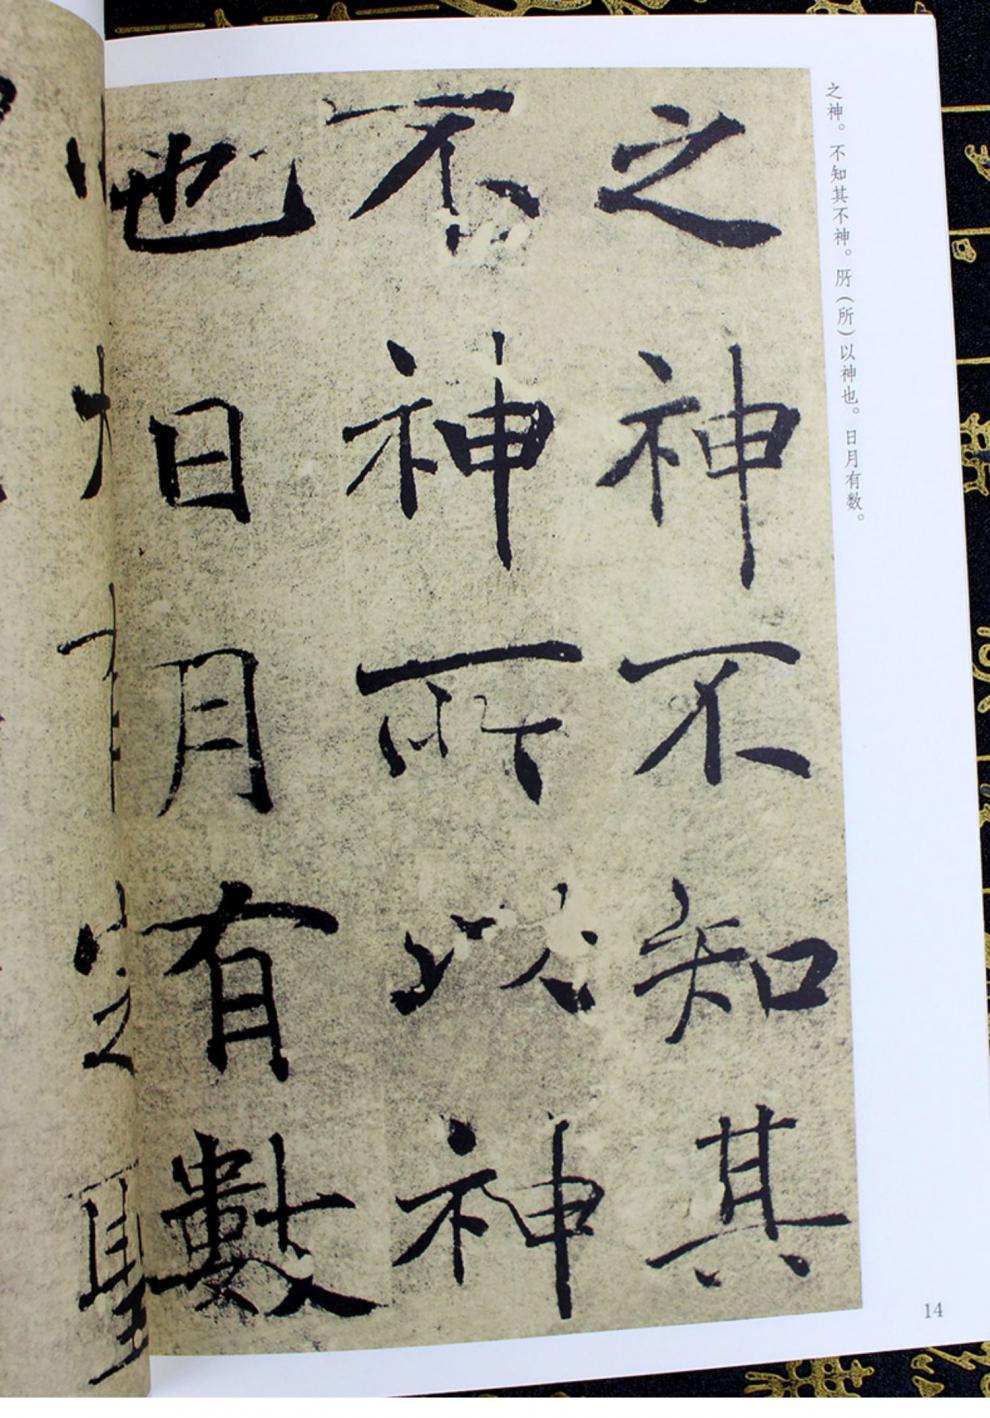 之神。不知其不神。㪽（所）以神也。日月有数。
之神不知其
不神所以神
也日月有數
14